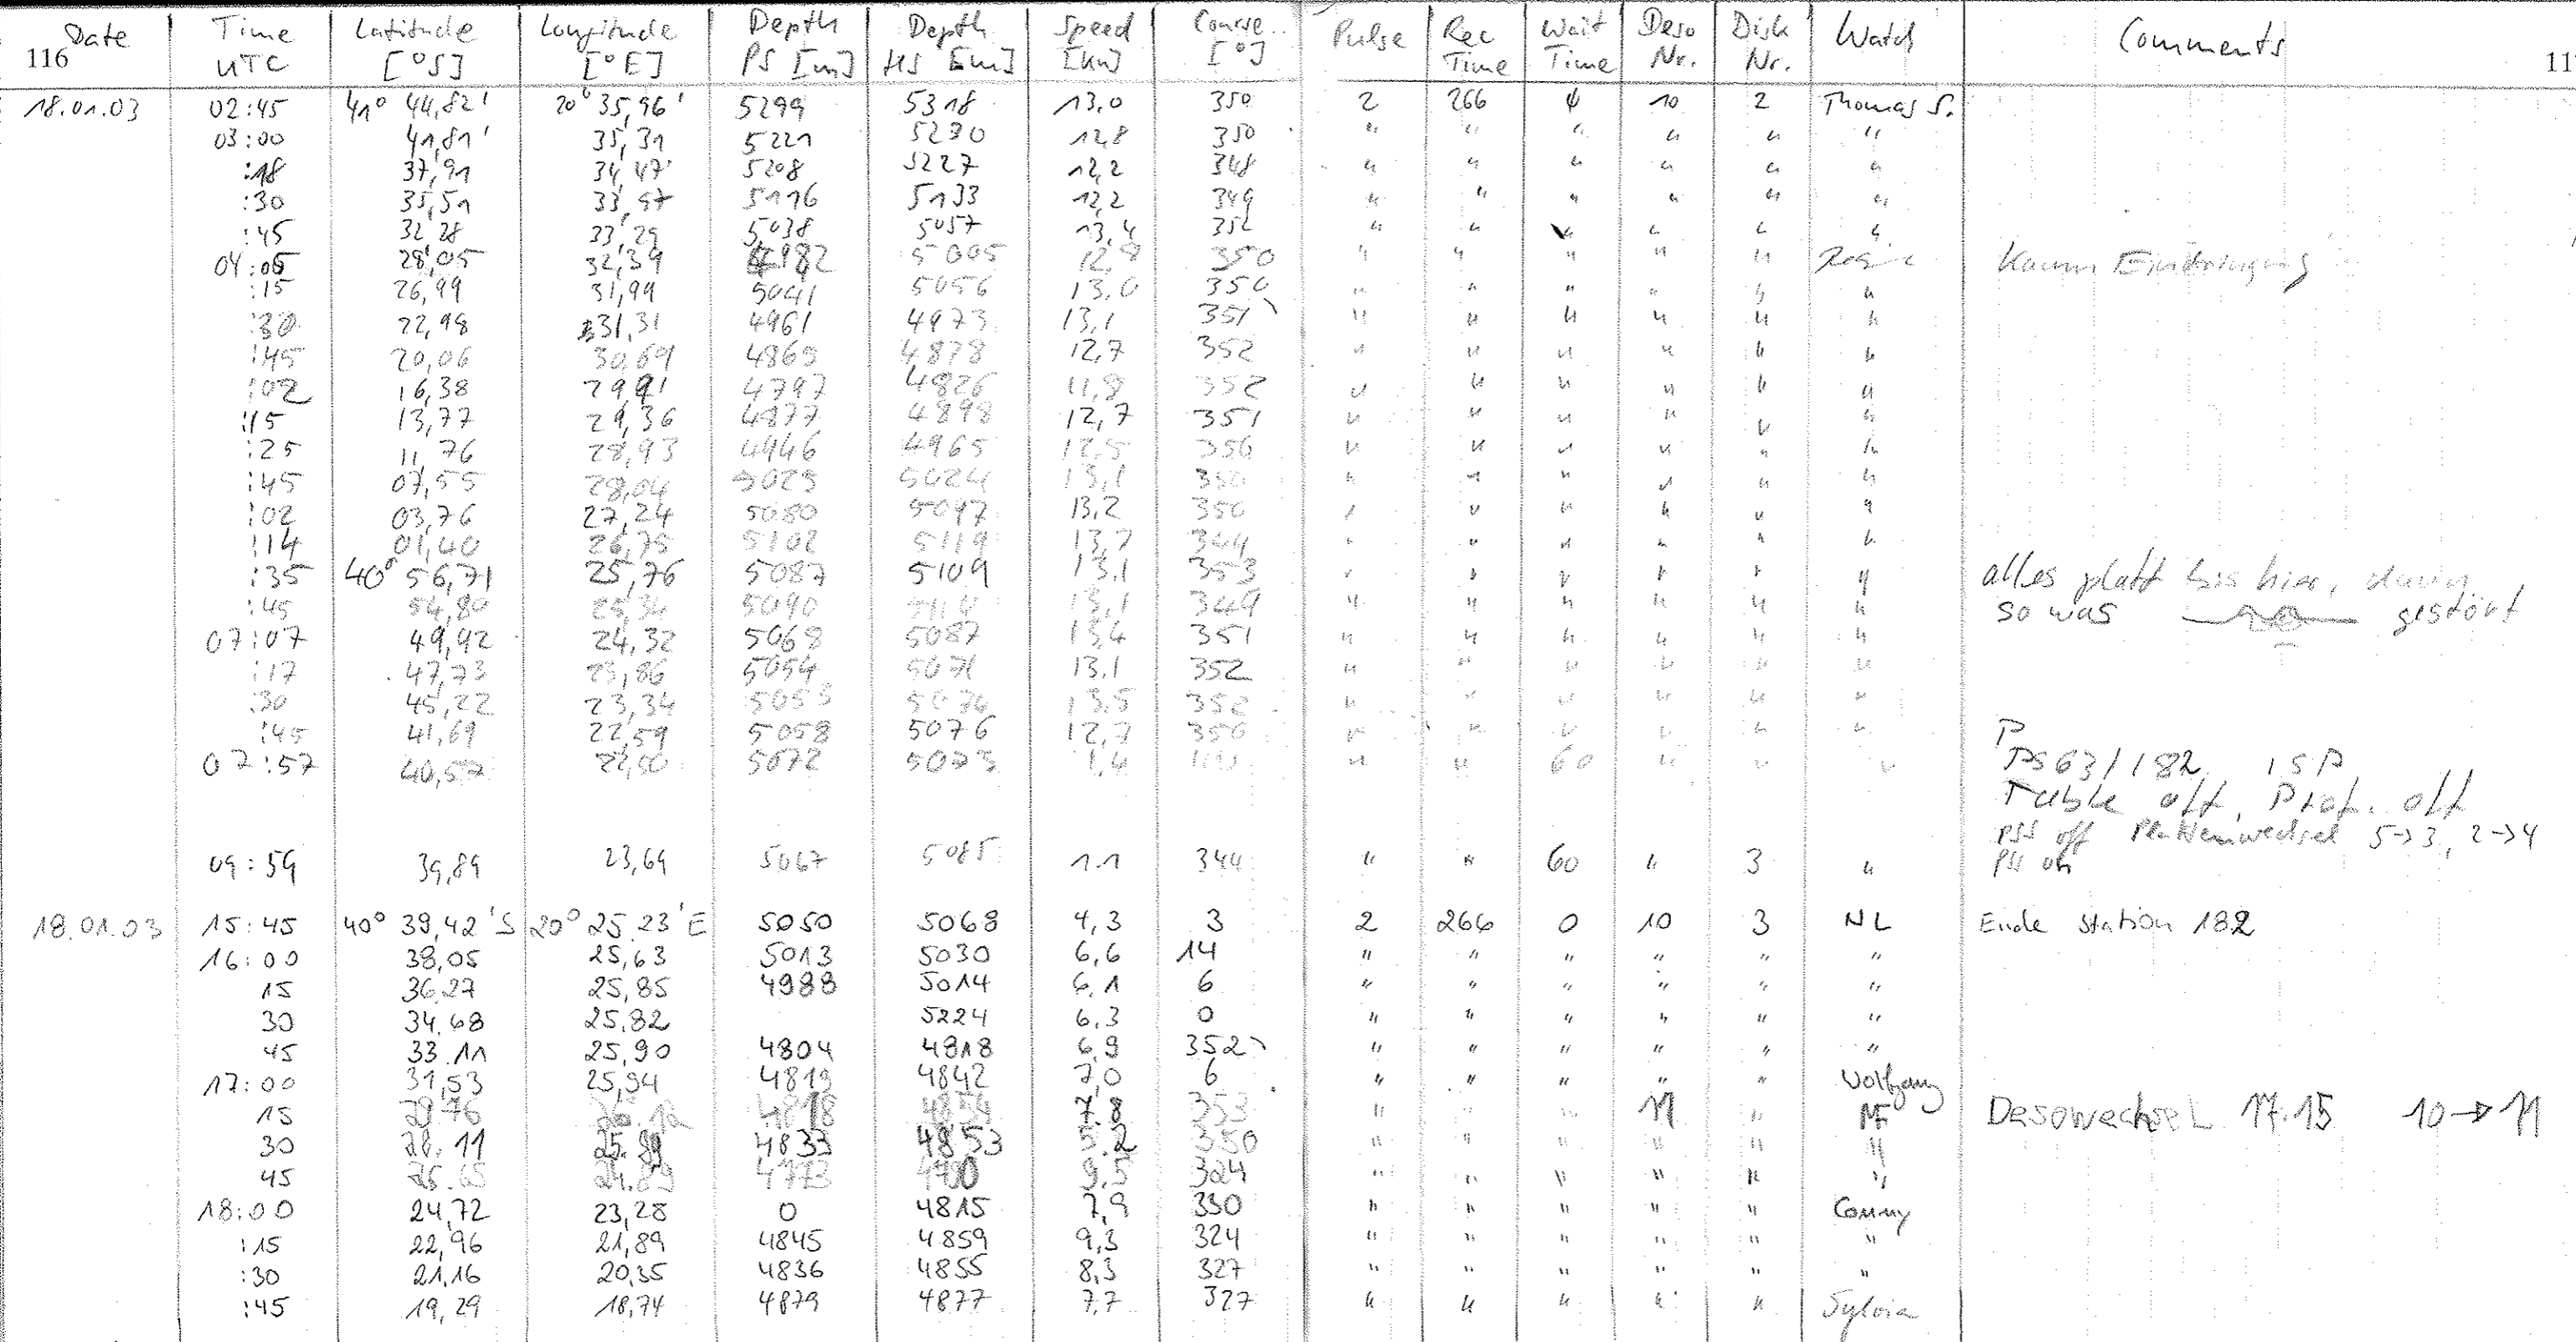 Date Time Latitude Longitude Depth Depth Speed Course Pulse Rec Wait Deso Disk Watch Comments
116 UTC [°S] [°E] PS [m] HS [m] [kn] [°] Time Time Nr. Nr. 11
18.01.03 02:45 41° 44,82' 20° 35,96' 5299 5318 13,0 350 2 266 ϕ 10 2 Thomas S.
03:00 41,81' 35,31 5221 5230 12,8 350 " " " " " "
:18 37,91 34,47' 5208 5227 12,2 348 " " " " " "
:30 35,51 33,97 5116 5133 12,2 349 " " " " " "
:45 32,28 33,29 5038 5057 13,4 352 " " " " "
04:05 28,05 32,39 4982 5005 12,8 350 " " " " " Kaum Eindringung
:15 26,99 31,99 5041 5056 13,0 350 " " " " " "
:30 22,98 31,31 4961 4973 13,1 351 " " " " " "
:45 20,06 30,69 4865 4878 12,7 352 " " " " " "
:02 16,38 29,91 4797 4826 11,8 352 " " " " " "
:15 13,77 29,36 4877 4898 12,7 351 " " " " " "
:25 11,76 28,93 4946 4965 12,5 350 " " " " " "
:45 07,55 28,04 5025 5024 13,1 350 " " " " " "
:02 03,76 27,24 5080 5097 13,2 350 " " " " " "
:14 01,40 26,75 5102 5119 13,7 349 " " " " " "
:35 40° 56,71 25,76 5087 5109 13,1 353 " " " " " " alles platt bis hier, dann
:45 54,80 25,34 5090 13,1 349 " " " " " " so was gestört
07:07 49,92 24,32 5068 5087 13,4 351 " " " " " "
:17 47,73 23,86 5054 5071 13,1 352 " " " " " "
:30 45,22 23,34 5055 5074 13,5 352 " " " " " "
:45 41,69 22,59 5058 5076 12,7 350 " " " " " " P
07:57 40,57 5072 5073 1,4 " " 60 " " " PS63/182 ISP
Table off, Prof. off
PSS off Plattenwechsel 5→3, 2→4
09:59 39,89 23,69 5067 5085 1.1 344 " " 60 " 3 " PSS on
18.01.03 15:45 40° 39,42'S 20° 25.23'E 5050 5068 4,3 3 2 266 0 10 3 NL Ende Station 182
16:00 38,05 25,63 5013 5030 6,6 14 " " " " " "
15 36.27 25,85 4988 5014 6,1 6 " " " " " "
30 34.68 25.82 5224 6,3 0 " " " " " "
45 33.11 25,90 4804 4818 6,9 352 " " " " " "
17:00 31,53 25,94 4819 4842 7,0 6 " " " " " Wolfgang
15 29.76 26.12 4818 7.8 353 " " " 11 " Desowechsel 17.15 10→11
30 28.11 25.89 4833 4853 5.2 350 " " " " " "
45 26.65 24.89 4773 4790 9,5 324 " " " " " "
18:00 24,72 23,28 0 4815 7,9 330 " " " " " Conny
:15 22,96 21,89 4845 4859 9,3 324 " " " " " "
:30 21,16 20,35 4836 4855 8,3 327 " " " " " "
:45 19,29 18,74 4879 4877 7,7 327 " " " " " Sylvia